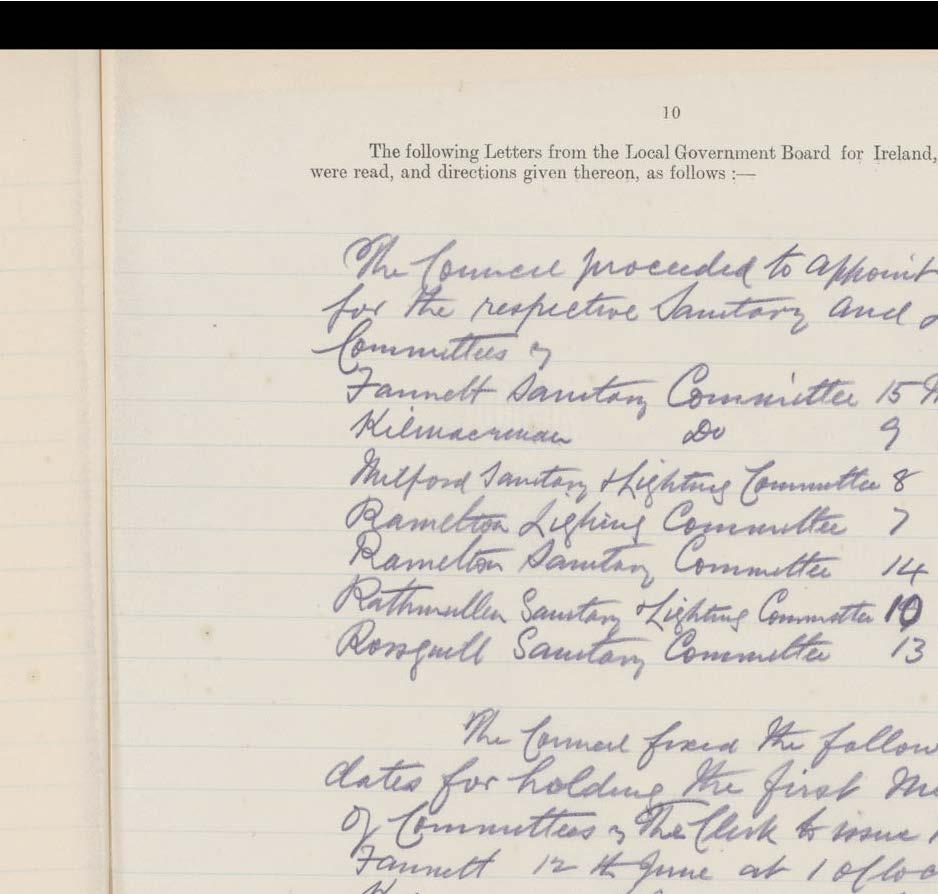 10
The following Letters from the Local Government Board for Ireland,
were read, and directions given thereon, as follows :—
The Council proceeded to appoint
for the respective Sanitary and
Committees
Fannett Sanitary Committee 15
Kilmacrenan Do 9
Milford Sanitary & Lighting Committee 8
Ramelton Lighing Committee 7
Ramelton Sanitary Committee 14
Rathmullen Sanitary & Lighting Committee 10
Rossguill Sanitary Committee 13
The Council fixed the follow
dates for holding the first Me
of Committees The Clerk to issue
Fannett 12th June at 1 oCloc